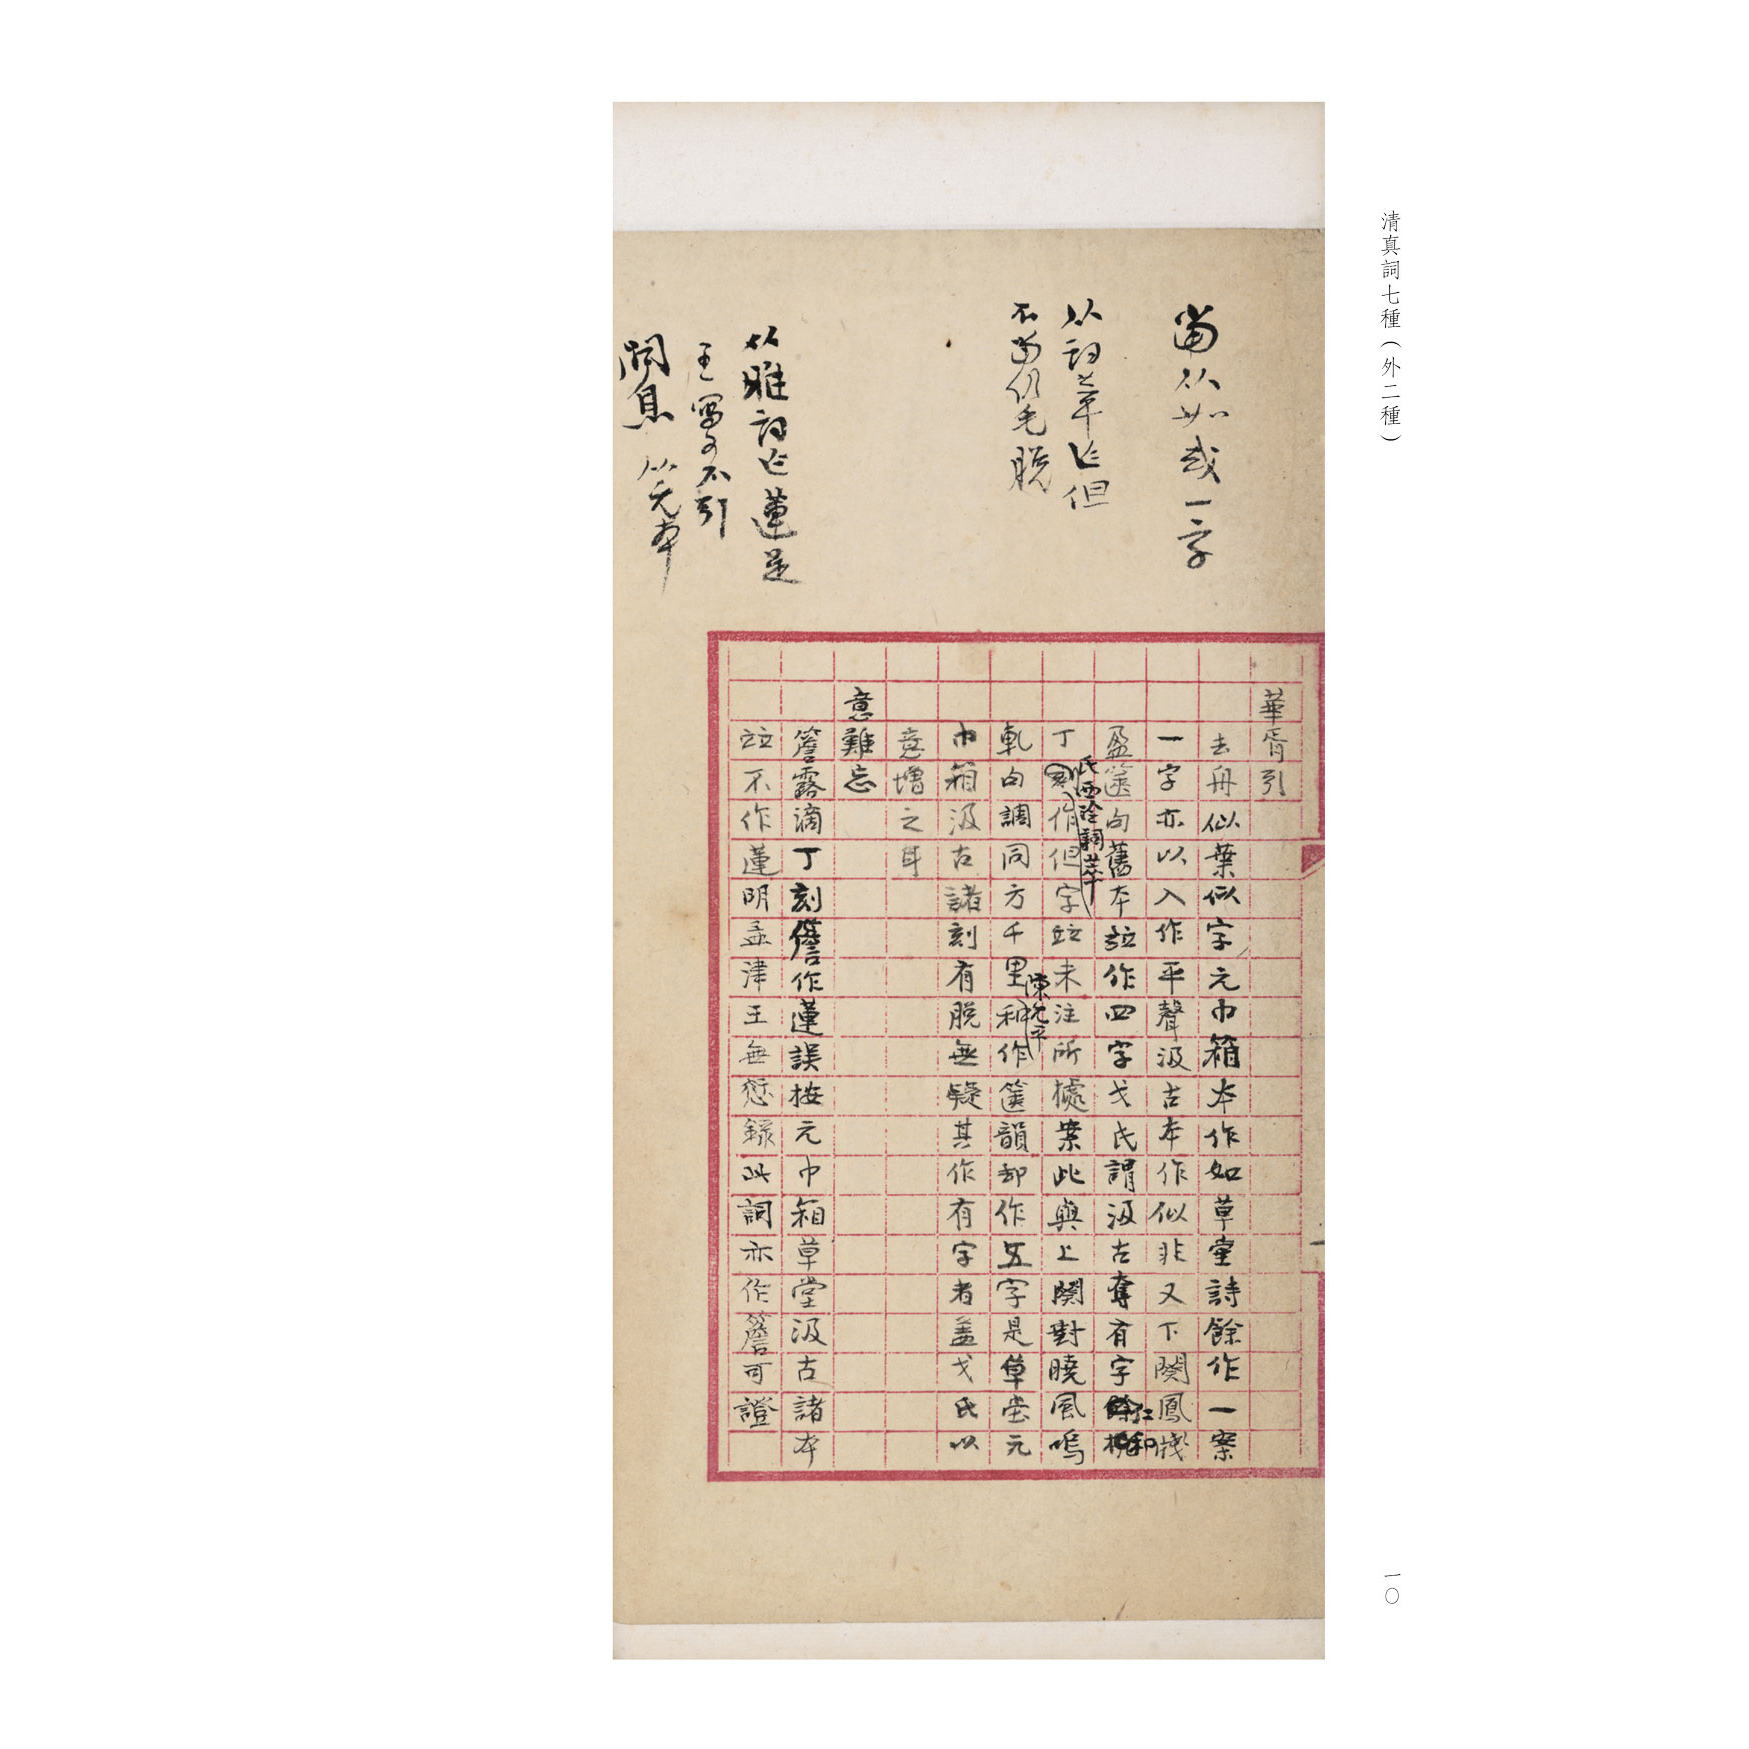 清真詞七種（外二種）
一〇
當从如或一字
从詞萃作但
不當仍毛脫
从雅詞作蘧是
王寫不引
從元本
華胥引
去舟似葉似字元巾箱本作如草堂詩餘作一案
一字亦以入作平聲汲古本作似非又下闋鳳牋
盈篋句舊本竝作四字戈氏謂汲古奪有字仁和
丁氏西泠詞萃作但字竝未注所據案此與上闋對曉風嗚
軋句調同方千里陳允平和作篋韻却作五字是草堂元
巾箱汲古諸刻有脫無疑其作有字者蓋戈氏以
意增之耳
意難忘
簷露滴丁刻簷作蘧誤按元巾箱草堂汲古諸本
竝不作蘧明孟津王無愆錄此詞亦作簷可證